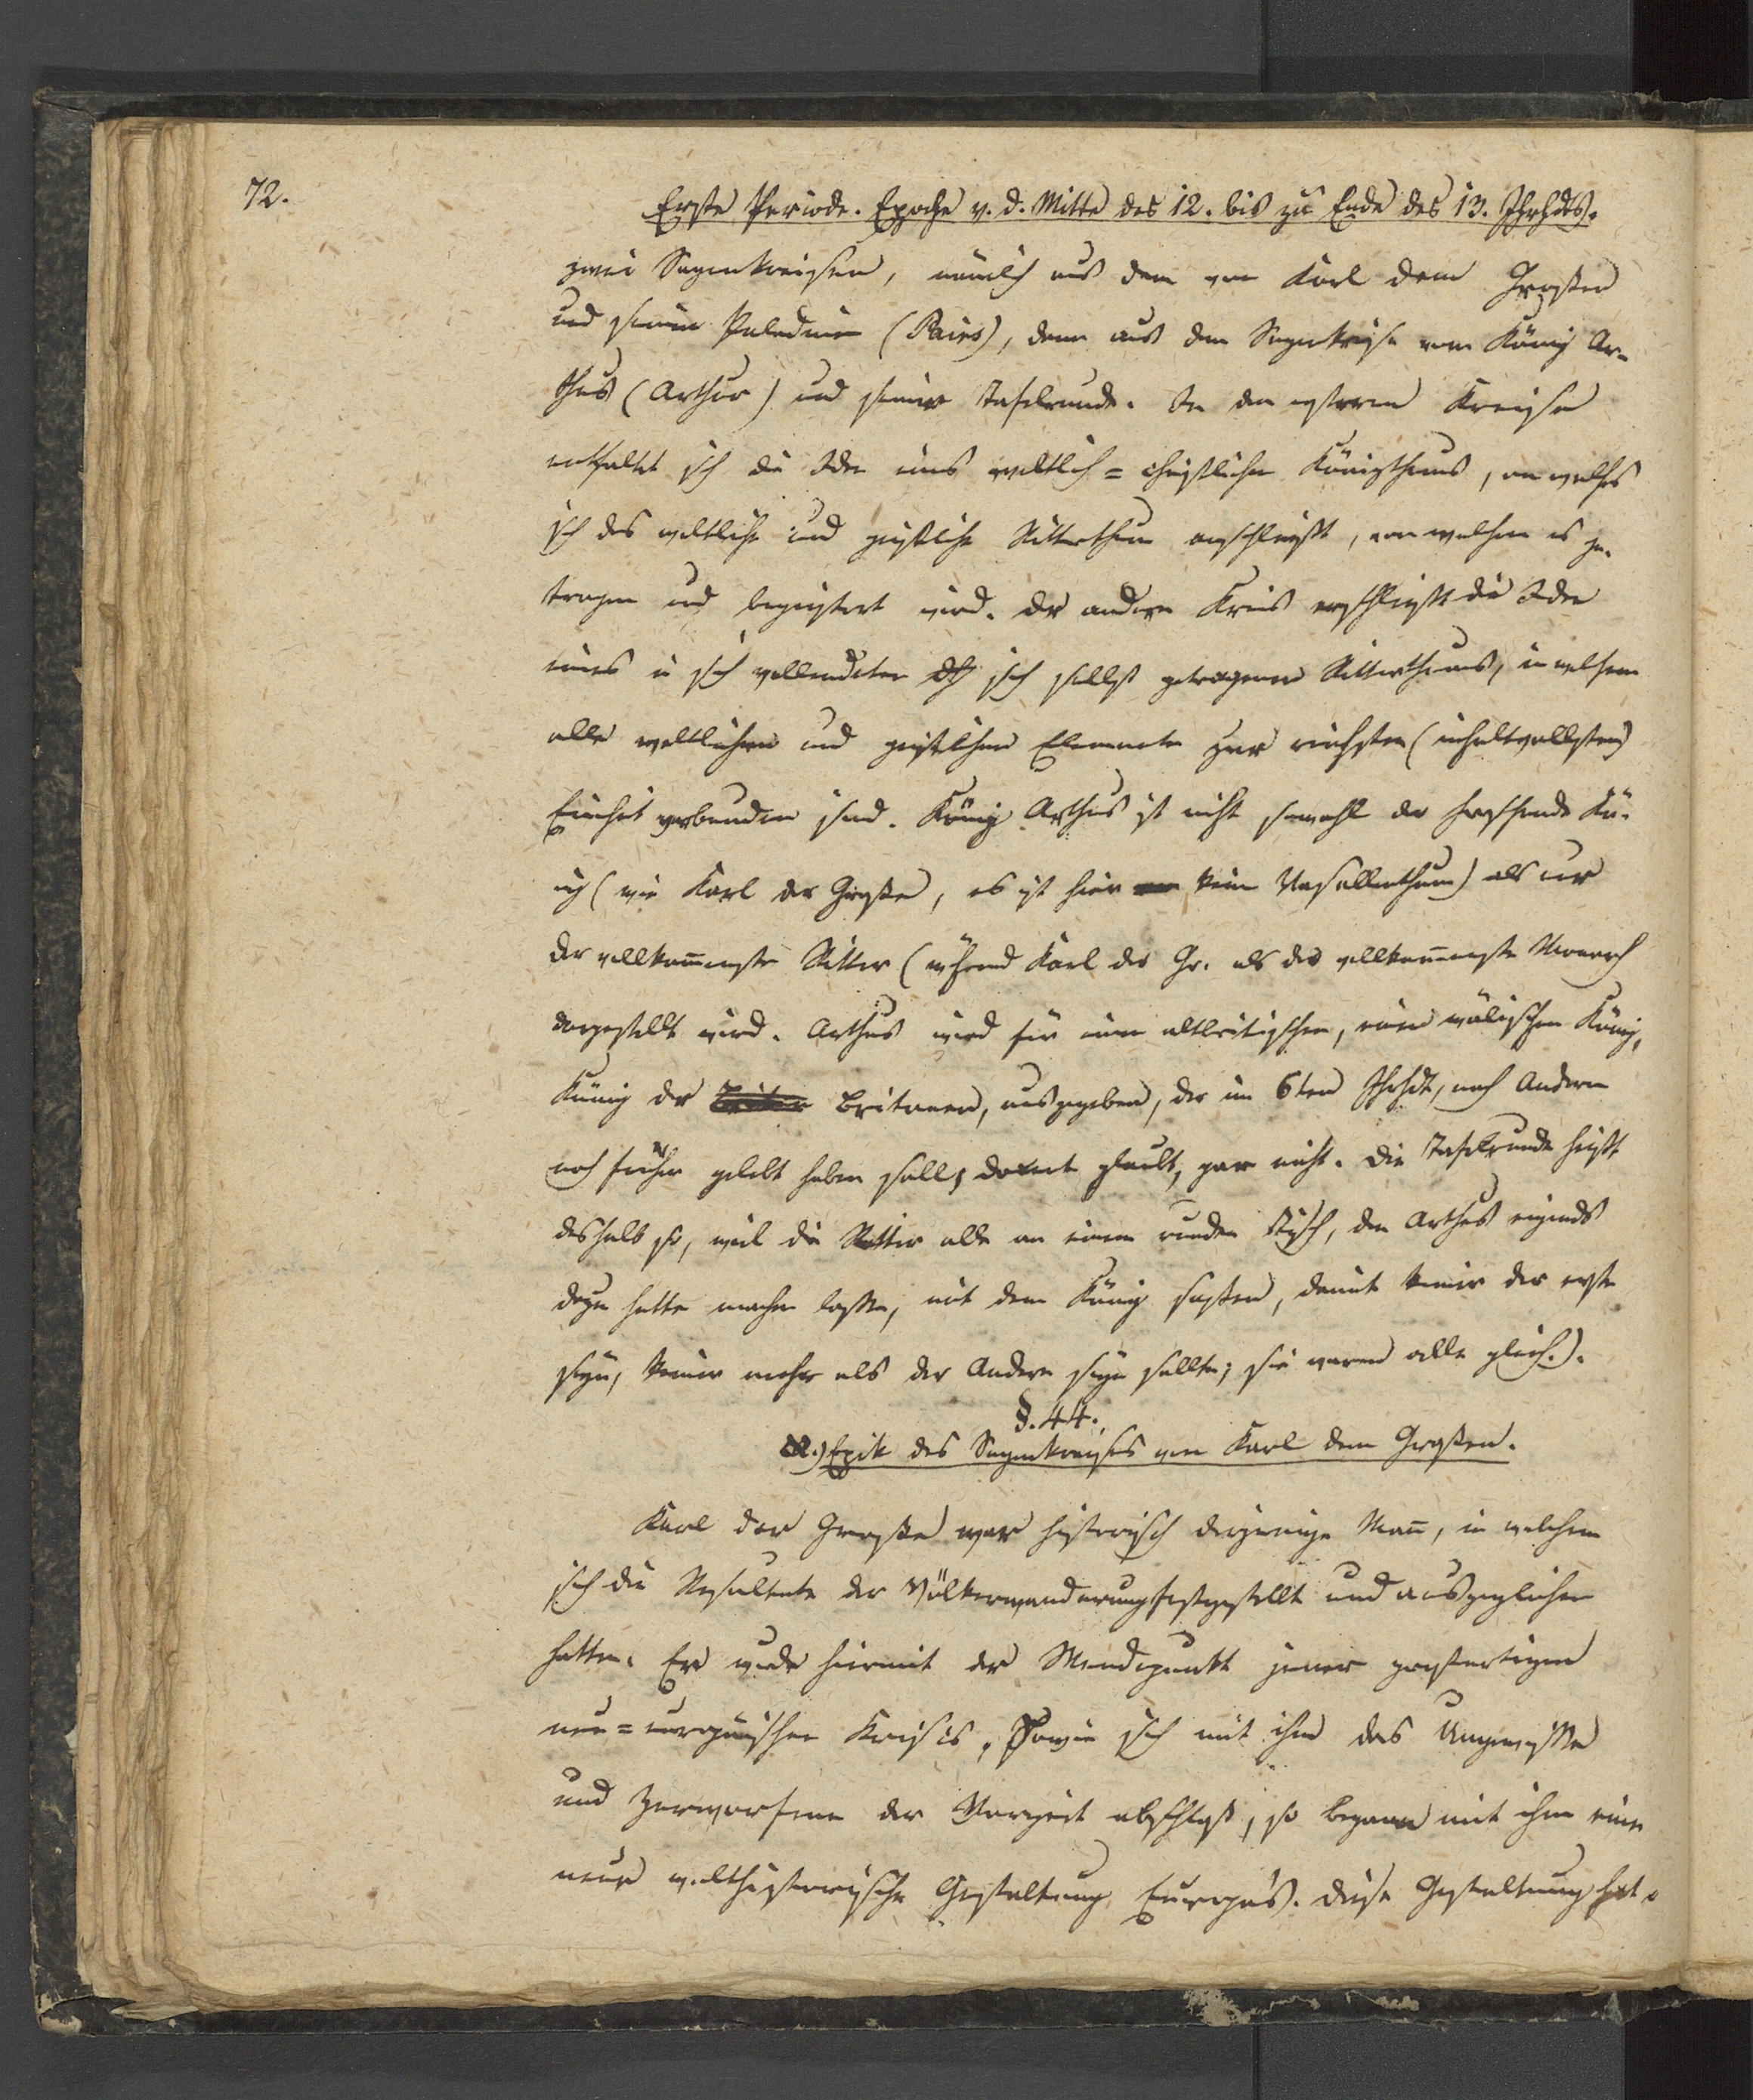 72.
Erste Periode. Epoche v. d. Mitte des 12. bis zu Ende des 13. Jhrhdts.
zwei Sagenkreisen, nämlich aus dem von Karl dem Großen
und seinen Paladinen (Pairs), dann aus dem Sagenkreise vom König Ar-
thus (Arthur) und seiner Tafelrunde. In dem ersteren Kreise
entfaltet sich die Idee eines weltlich=christlichen Königthums, an welches
sich das weltliche und geistliche Ritterthum anschließt, von welchem es ge-
tragen und begeistert wird. Der andere Kreis erschließt die Idee
eines in sich vollendeten dch sich selbst getragenen Ritterthums, in welchem
alle weltlichen und geistlichen Elemente zur reichsten (inhaltvollsten)
Einheit verbunden sind. König Arthus ist nicht sowohl der herrschende Kö-
nig (wie Karl der Große, es ist hier kein Vasallenthum) als nur
der vollkom̄enste Ritter (während Karl der Gr. als der vollkom̄enste Monarch
dargestellt wird. Arthus wird für einen altbritischen, einen wälischen König,
König der Britannen, ausgegeben, der im 6ten Jhrhdt, nach Andern
noch früher gelebt haben soll, glaubt, gar nicht. Die Tafelrunde heißt
deshalb so, weil die Ritter alle an einem runden Tisch, den Arthus eigends
dazu hatte machen lassen, mit dem König saßen, damit keiner der erste
seyn, keiner mehr als der Andere seyn sollte; sie waren alle gleich.).
§. 44.
Epik des Sagenkreises von Karl dem Großen.
Karl der Große war historisch derjenige Man̄, in welchem
sich die Resultate der Völkerwanderung festgestellt und ausgeglichen
hatten. Er wurde hiermit der Wendepunkt jener großartigen
neu=europäischen Krisis. Sowie sich mit ihm das Ungewisse
und Zerworfene der Vorzeit abschloß, so begann mit ihm eine
neue welthistorische Gestaltung Europa's. Diese Gestaltung hat-